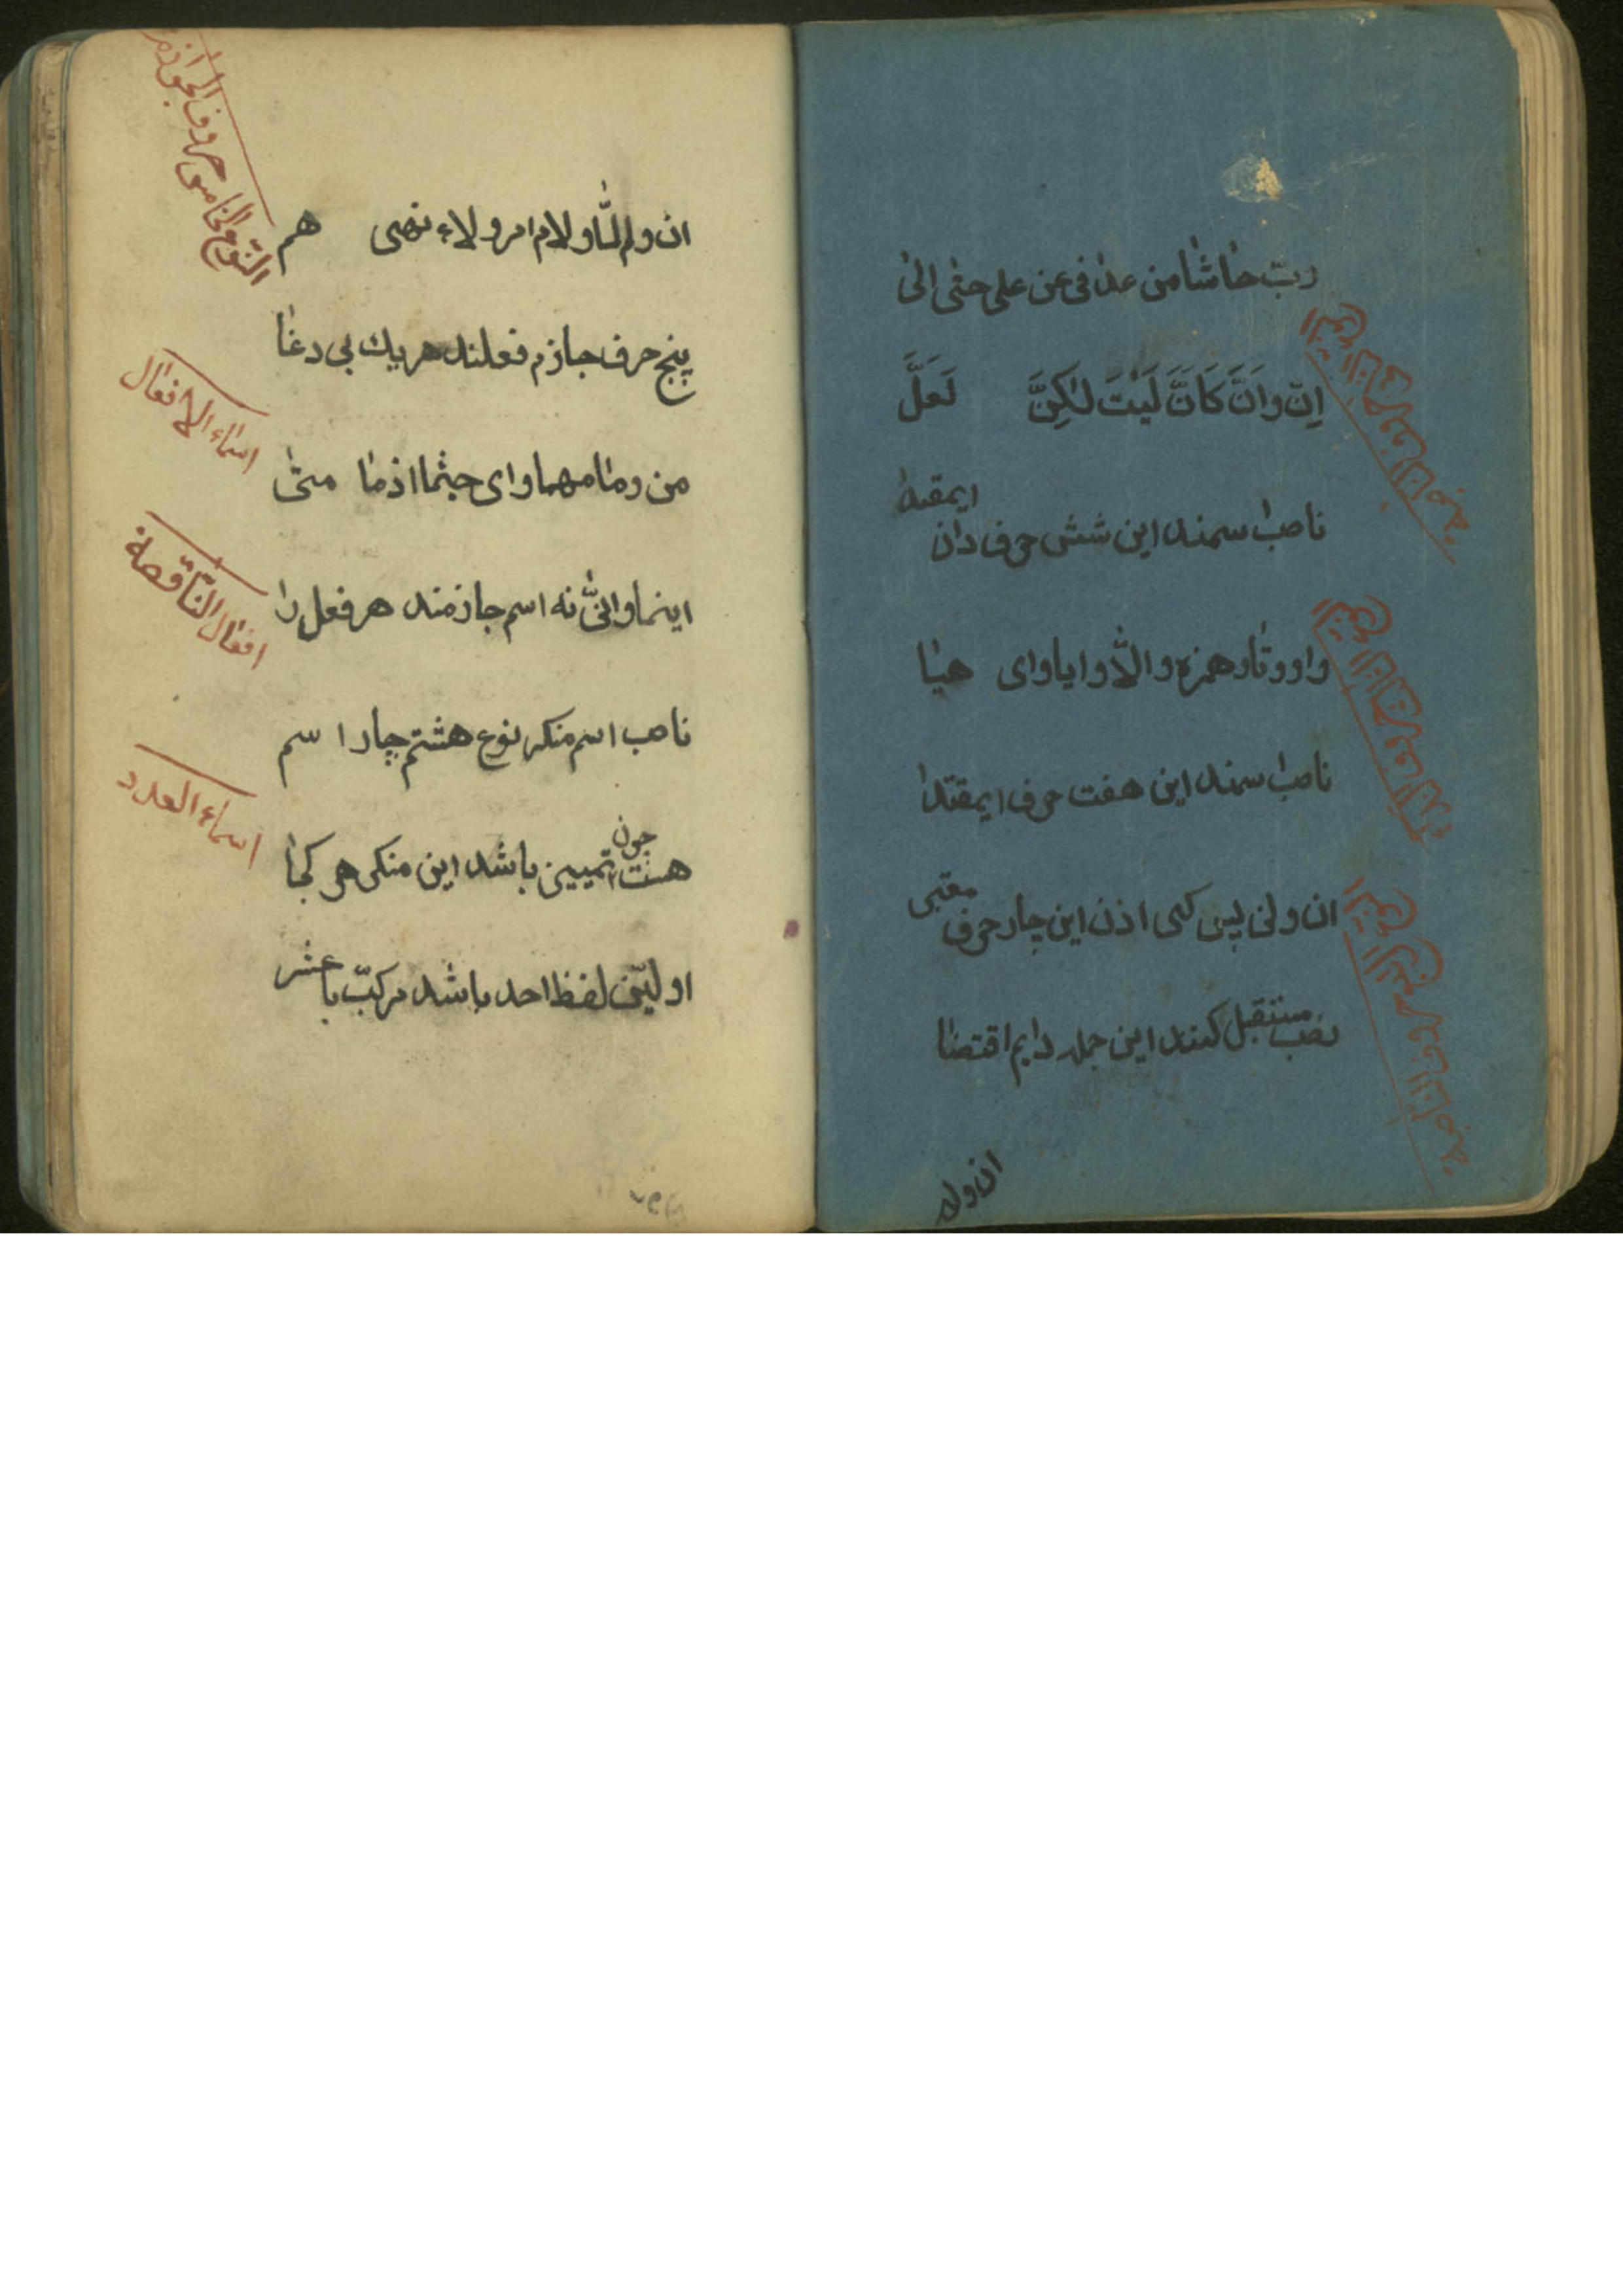 رب حاشا من عدا فی عن علی حتی الی
اِنّ واَنَّ کَاَنَّ لَیْتَ لٰکِنَّ لَعَلَّ
ناصب اسمند این شش حرف دان ایمقتدا
واو و تا و همزه و الّا و ایا و ای هیا
ناصب اسمند این هفت حرف ایمقتدا
ان و لن پس کی اذن این چار حرف معتبر
نصب مستقبل کنند این جمله دایم اقتضا
ان ولم
النّوع الخامس حروف الجوازم
ان ولم لمّا و لام امر و لاء نهی هم
پنج حرف جازم فعلند هریك بی دغا
من و ما مهما و ای حیثما اذ ما متی
اسماء الافعال
اینما و انّی نه اسم جازمند هر فعل را
افعال النّاقصة
ناصب اسم منکر نوع هشتم چار اسم
اسماء العدد
هست چون تمییز باشد این منکر هر کجا
اولیّن لفظ احد باشد مرکّب با عشر